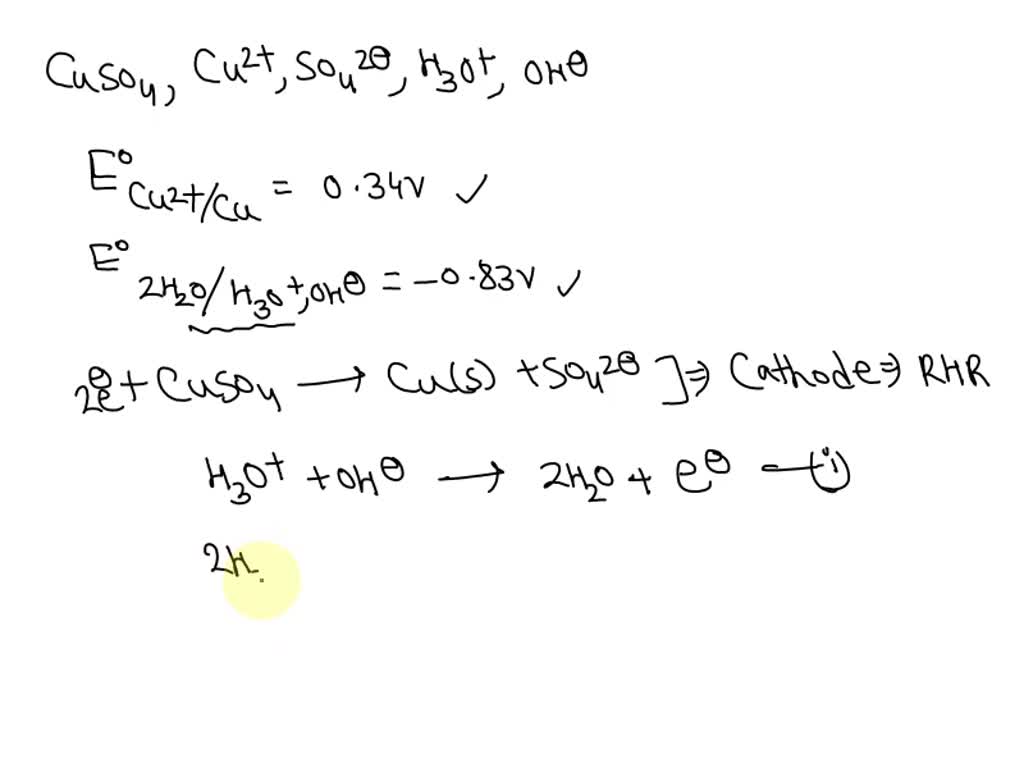 CuSO₄, Cu²⁺, SO₄²⊖, H₃O⁺, OH⊖
E° Cu²⁺/Cu = 0.34V ✓
E° 2H₂O/H₃O⁺,OH⊖ = -0.83V ✓
2e⊖ + CuSO₄ → Cu(s) + SO₄²⊖ ] ⇒ Cathode ⇒ RHR
H₃O⁺ + OH⊖ → 2H₂O + e⊖ —(i)
2H